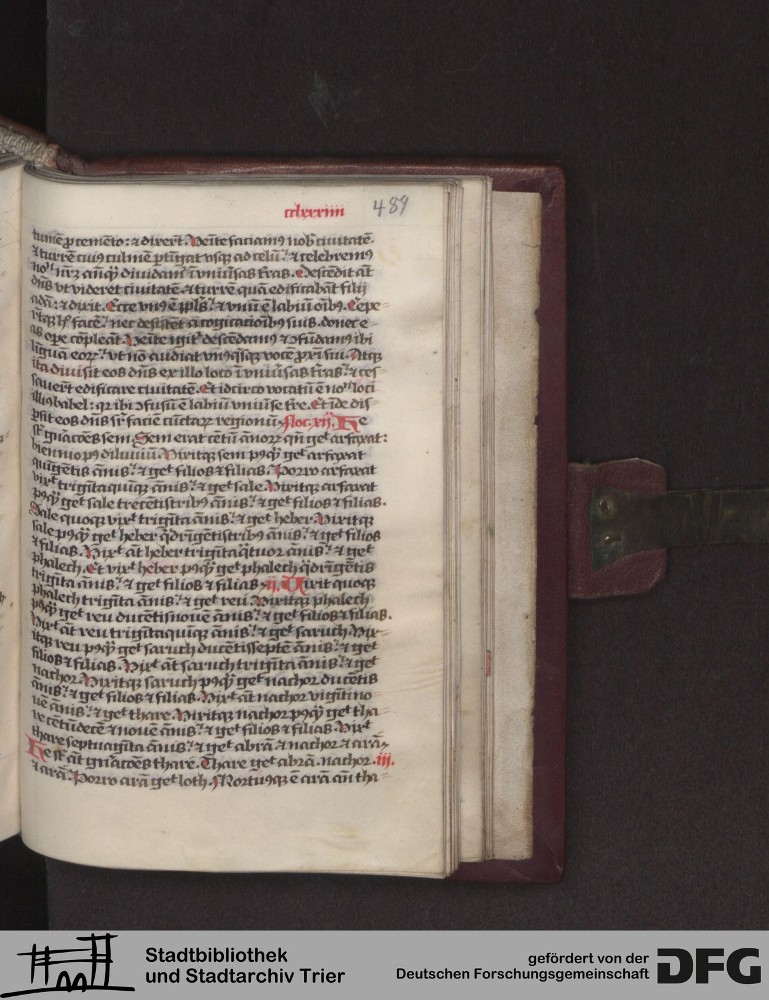 cclxxxiiii 489
tumē ꝓ cemēto: ⁊ dixert̄. Veīte faciamꝰ nob̄ ciuitatē
⁊ turrē cuiꝰ culmē ꝑtīgat vsqꝫ ad celū: ⁊ celebremꝰ
nom̄ nr̄ꝫ an̄qꝫ diuidam̄ ī vniūsas tr̄as. Descēdit at̄
dn̄s vt videret ciuitatē ⁊ turrē quā edificabāt filij
adā: ⁊ dixit. Ecce vnꝰ ē ppl̄s: ⁊ vnū ē labiū oībꝫ. Cepe-
rt̄qꝫ h̄ facē: nec desistēt a cogitacioībꝫ suis. donec e-
as oꝑe cōpleāt. Veīte igit̄ descēdamꝰ ⁊ ꝯfūdamꝰ ibi
linguā eoꝝ: vt nō audiat vnꝰqsqꝫ vocē ꝓxīi sui. Atqꝫ
ita diuisit eos dn̄s ex illo loco ī vniūsas tr̄as: ⁊ ces-
sauert̄ edificare ciuitatē. Et idcirco vocatū ē nom̄ loci
illiꝰ babel: qꝛ ibi ꝯfusū ē labiū vniūse tr̄e. Et īde dis-
ꝑsit eos dn̄s sr̄ faciē cūctaꝝ regionū.
He
st̄ gn̄acōes sem. Sem erat cētū ānoꝝ qn̄ get̄ arfaxat:
biennio pꝰ diluuiū. Vixitqꝫ sem pꝰqꝫ get̄ arfaxat
quīgētis ānis: ⁊ get̄ filios ⁊ filias. Porro arfaxat
vixt̄ trigītaquīqꝫ ānis: ⁊ get̄ sale. Vixitqꝫ arfaxat
pꝰqꝫ get̄ sale trecētistribꝫ ānis: ⁊ get̄ filios ⁊ filias.
Sale quoqꝫ vixt̄ trigīta ānis: ⁊ get̄ heber. Vixitqꝫ
sale pꝰqꝫ get̄ heber q̄drīgētistribꝫ ānis: ⁊ get̄ filios
⁊ filias. Vixt̄ at̄ heber trigīta q̄tuor ānis: ⁊ get̄
phalech. Et vixt̄ heber pꝰqꝫ get̄ phalech q̄drīgētis
trigīta ānis: ⁊ get̄ filios ⁊ filias. ij. Vixit quoqꝫ
phalech trigīta ānis: ⁊ get̄ reu. Vixitqꝫ phalech
pꝰqꝫ get̄ reu ducētisnouē ānis: ⁊ get̄ filios ⁊ filias.
Vixt̄ at̄ reu trigītaquīqꝫ ānis: ⁊ get̄ saruch. Vix-
itqꝫ reu pꝰqꝫ get̄ saruch ducētisseptē ānis: ⁊ get̄
filios ⁊ filias. Vixt̄ at̄ saruch trigīta ānis: ⁊ get̄
nachor. Vixitqꝫ saruch pꝰqꝫ get̄ nachor ducētis
ānis: ⁊ get̄ filios ⁊ filias. Vixt̄ at̄ nachor vigīti no-
uē ānis: ⁊ get̄ thare. Vixitqꝫ nachor pꝰqꝫ get̄ tha-
re cētūdecē ⁊ nouē ānis: ⁊ get̄ filios ⁊ filias. Vixt̄
thare septuagīta ānis: ⁊ get̄ abrā ⁊ nachor ⁊ arā.
He st̄ at̄ gn̄acōes thare. Thare get̄ abrā. nachor. iii.
⁊ arā. Porro arā get̄ loth. Mortuꝰqꝫ ē arā an̄ tha-
Stadtbibliothek
und Stadtarchiv Trier
gefördert von der
Deutschen Forschungsgemeinschaft
DFG